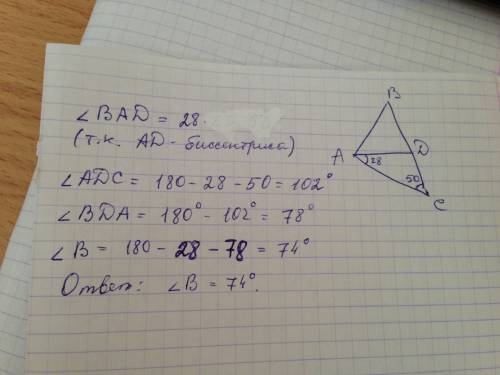 ∠BAD = 28.
(т.к. AD - биссектриса)
∠ADC = 180 - 28 - 50 = 102°
∠BDA = 180° - 102° = 78°
∠B = 180 - 28 - 78 = 74°
Ответ: ∠B = 74°.
B
A
28
D
50
C